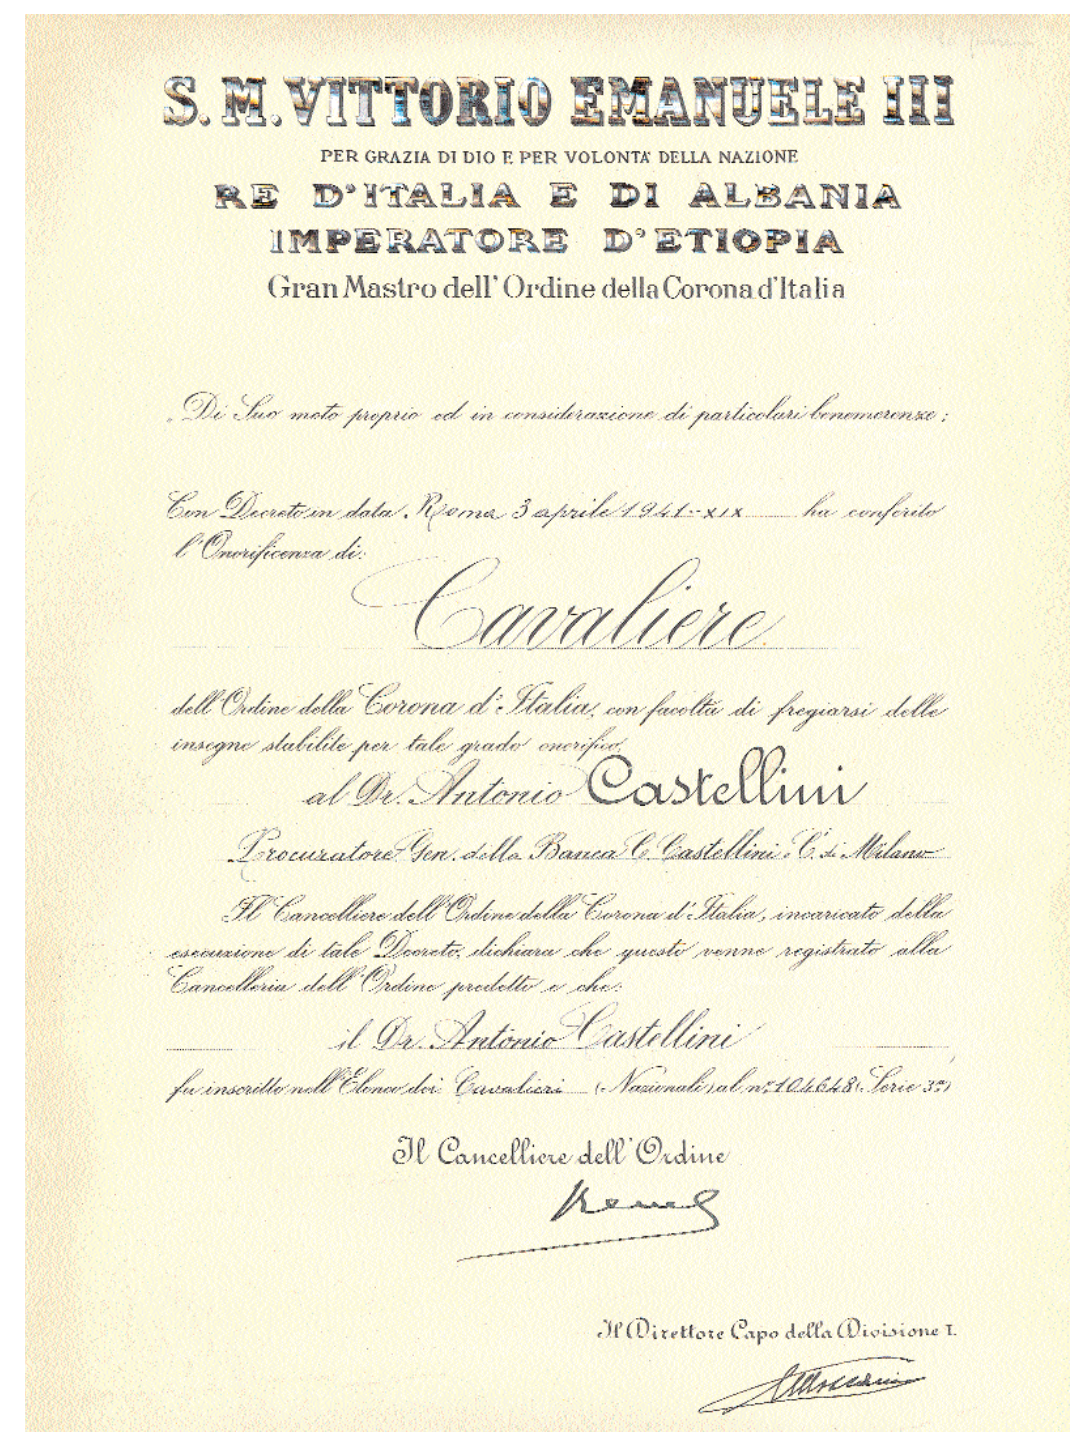 S. M. VITTORIO EMANUELE III
PER GRAZIA DI DIO E PER VOLONTA' DELLA NAZIONE
RE D'ITALIA E DI ALBANIA
IMPERATORE D'ETIOPIA
Gran Mastro dell' Ordine della Corona d'Italia
Di Suo moto proprio ed in considerazione di particolari benemerenze;
Con Decreto in data, Roma 3 aprile 1941-XIX ha conferito
l'Onorificenza di:
Cavaliere
dell'Ordine della Corona d'Italia, con facoltà di fregiarsi delle
insegne stabilite per tale grado onorifico,
al Dr. Antonio Castellini
Procuratore Gen. della Banca C. Castellini C. di Milano
Il Cancelliere dell'Ordine della Corona d'Italia, incaricato della
esecuzione di tale Decreto, dichiara che questo venne registrato alla
Cancelleria dell'Ordine predetto e che:
il Dr. Antonio Castellini
fu inscritto nell'Elenco dei Cavalieri (Nazionali) al n° 104648 (Serie 3ª)
Il Cancelliere dell'Ordine
Il Direttore Capo della Divisione I.